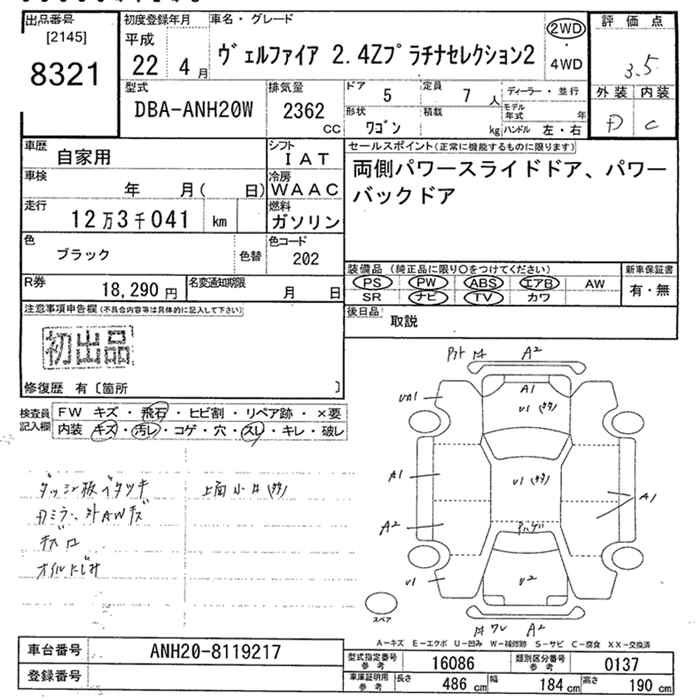 出品番号
[2145]
8321
初度登録年月
平成
22 4月
車名・グレード
ヴェルファイア 2.4Zプラチナセレクション2
2WD
・
4WD
評価点
3.5
外装 内装
D C
型式
DBA-ANH20W
排気量
2362
CC
ドア
5
定員
7人
形状
ワゴン
積載
kg
ディーラー・並行
モデル年式 年
ハンドル 左・右
車歴
自家用
シフト
IAT
車検
年 月( 日)
冷房
WAAC
走行
12万3千041 km
燃料
ガソリン
色
ブラック
色替
色コード
202
R券
18,290円
名変通知期限
月 日
セールスポイント(正常に機能するものに限ります)
両側パワースライドドア、パワー
バックドア
装備品(純正品に限り○をつけてください)
PS PW ABS エアB AW
SR ナビ TV カワ
新車保証書
有・無
後日品
取説
注意事項申告欄(不具合内容等は具体的に記入して下さい)
初出品
修復歴 有〔箇所 〕
検査員
記入欄
FW キズ・飛石・ヒビ割・リペア跡・×要
内装 キズ・汚レ・コゲ・穴・スレ・キレ・破レ
ダッシュ板ベタツキ
上面小キ
オイルにじみ
A2
UA1
A1
U1
A1
U1
A1
A2
U1
U2
A2
スペア
A-キズ E-エクボ U-凹み W-補修跡 S-サビ C-腐食 XX-交換済
車台番号
ANH20-8119217
登録番号
型式指定番号
参考
16086
類別区分番号
参考
0137
車庫証明用
参考
長さ
486cm
幅
184cm
高さ
190cm